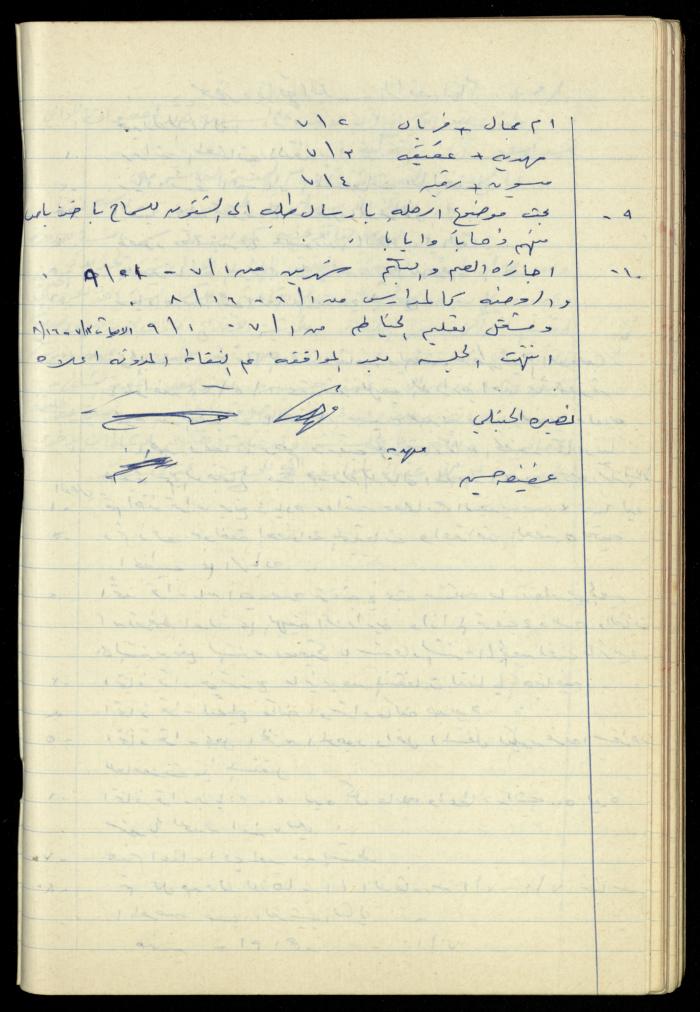 ام جمال + فريال ٧/٢
مهديه + عفيفه ٧/٣
ميسون + رقيه ٧/٤
٩- بحث موضوع الرحله بارسال طلب الى الشئون للسماح باخذ باص
منهم ذهابا وايابا
١٠- اجازة الصم والبكم شهرين من ٧/١ -
والروضه كالمدارس من ٦/١ - ٨/١٦
ومشغل تعليم الخياطه من ٧/١ - ٩/١
انتهت الجلسه بعد الموافقه على النقاط المدونه اعلاه
نصيره الحنبلي
مهديه
عفيفه حسين